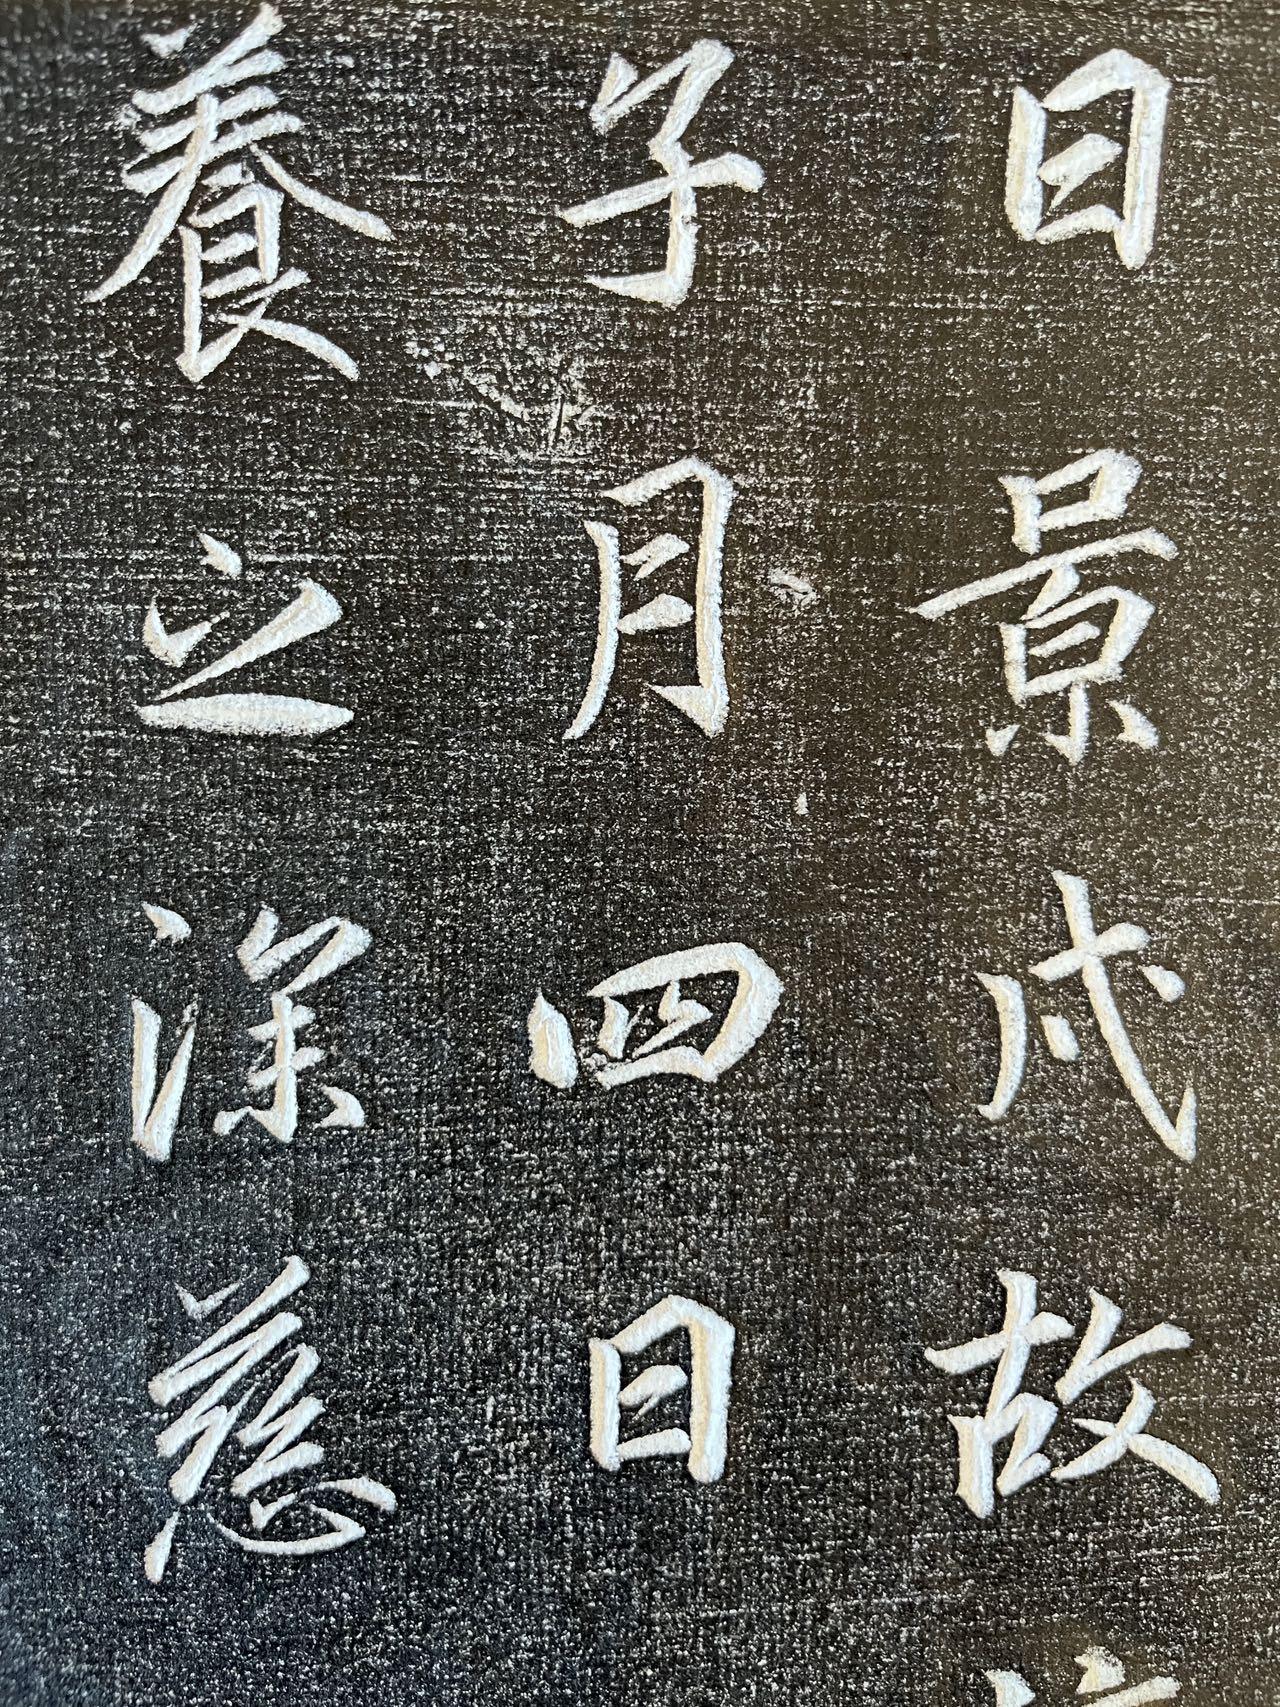 日景戌故
子月四日
養之深慈